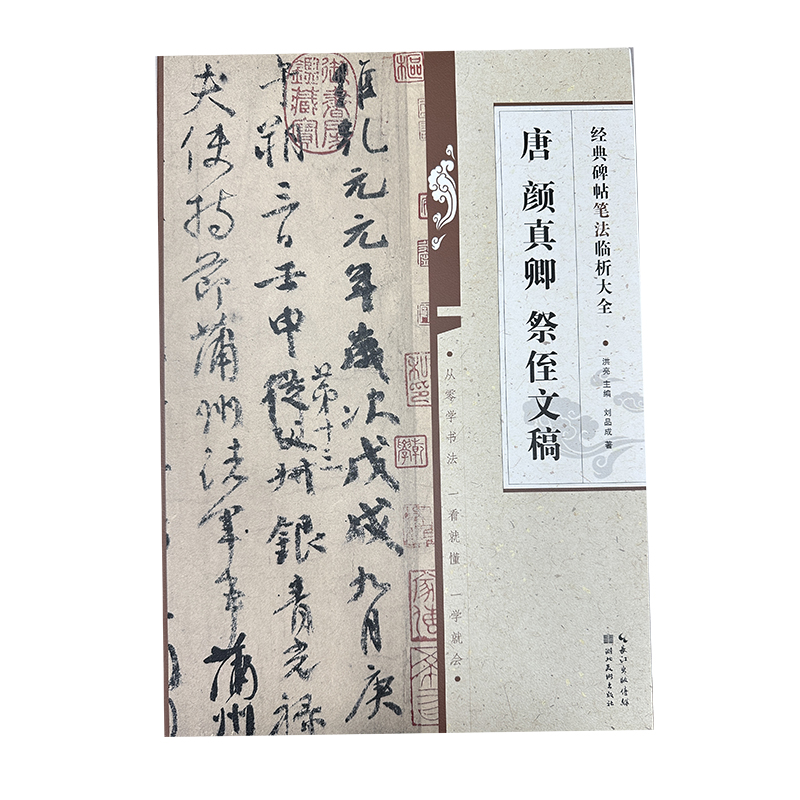 经典碑帖笔法临析大全
洪亮 主编 刘品成 著
唐 颜真卿 祭侄文稿
·从零学书法 一看就懂 一学就会·
长江出版传媒
湖北美术出版社
维乾元元年歳次戊戌九月庚
午朔三日壬申第十三從父銀青光禄
夫使持節蒲州諸軍事蒲州
御書房鑑藏寶